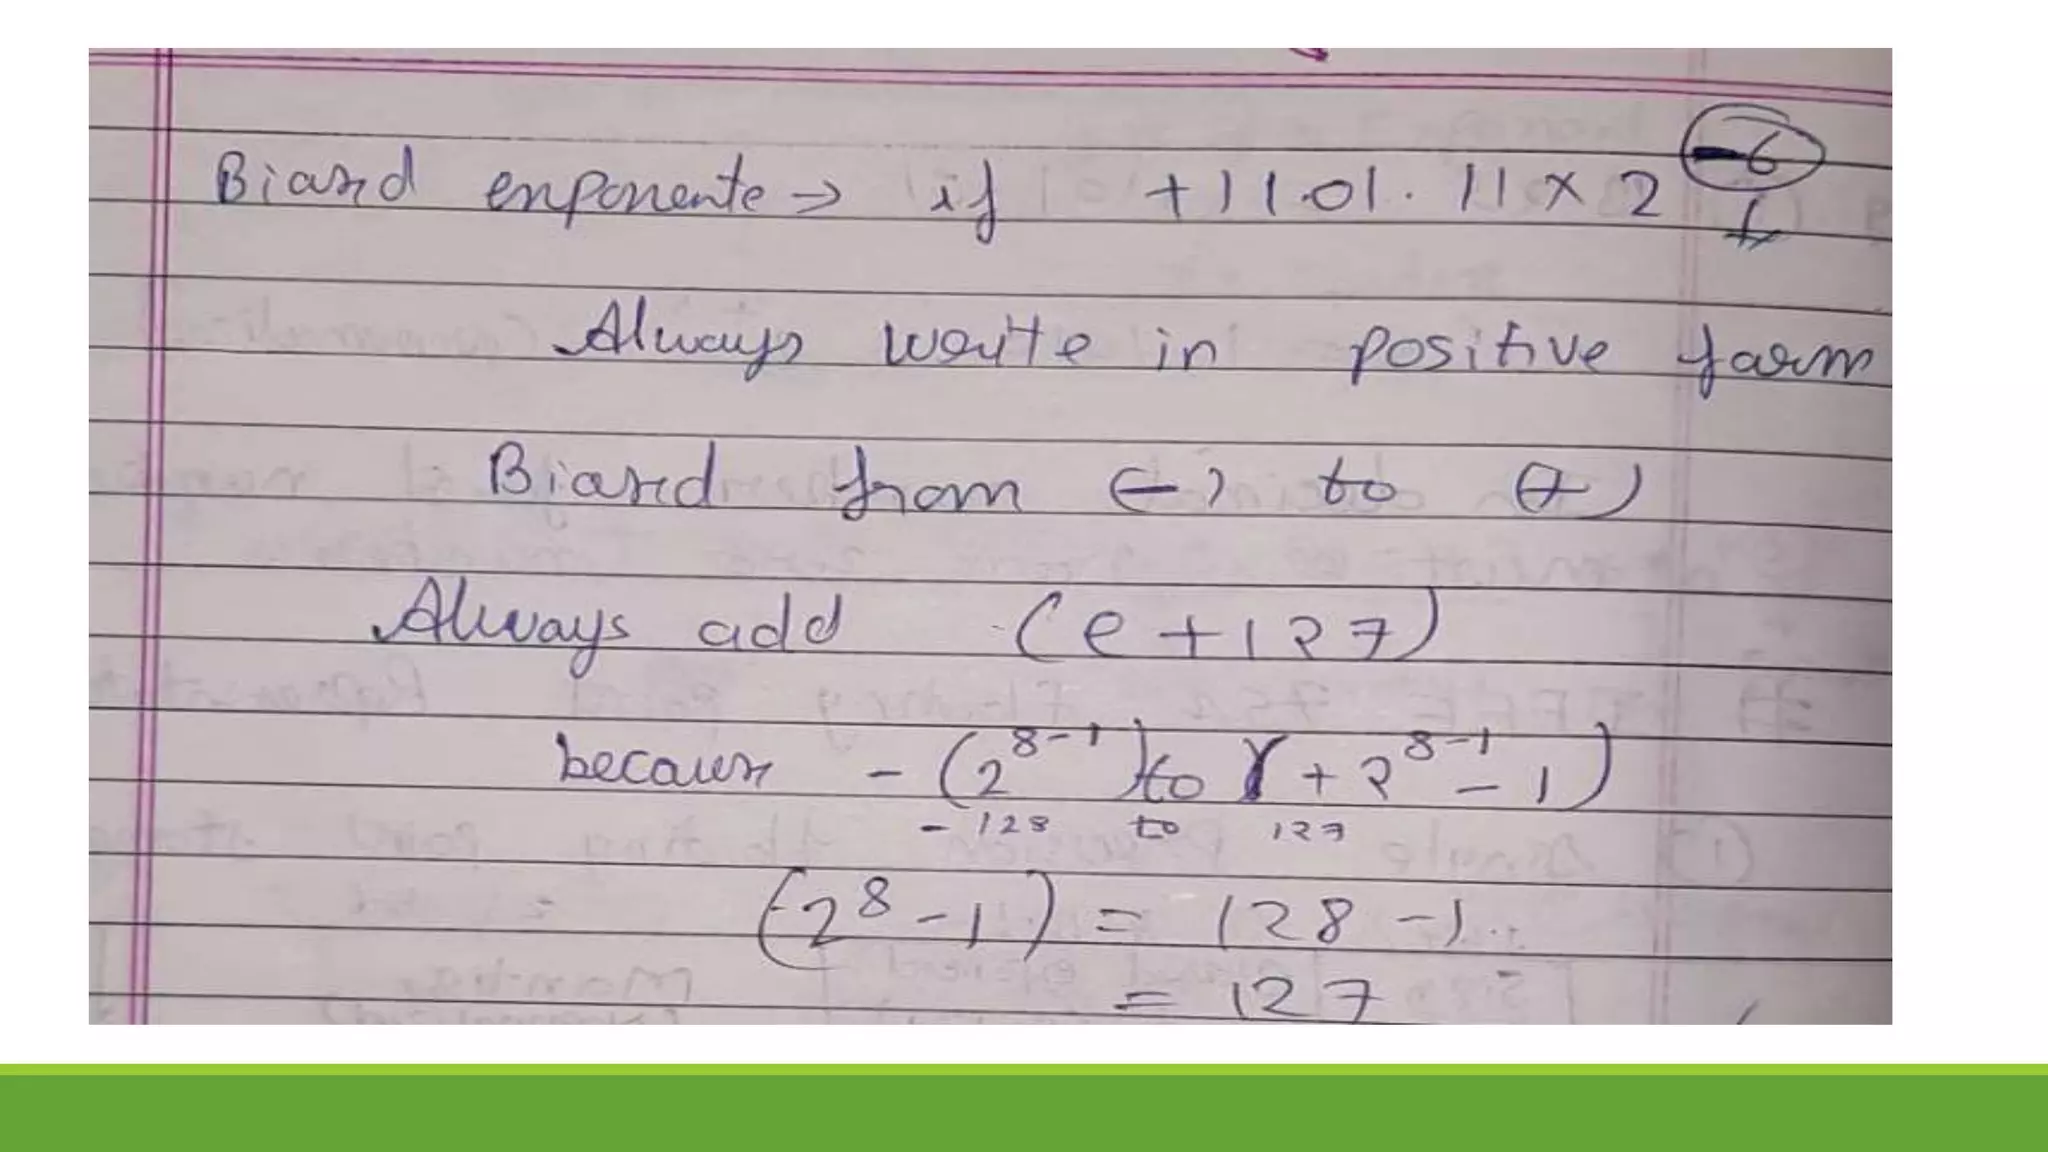 Biased exponente → if +1101.11 × 2^-6
Always write in positive form
Biased from (-) to (+)
Always add (e+127)
because - (2^8-1) to (+2^8-1 - 1)
-128 to 127
(2^8 - 1) = 128 - 1
= 127